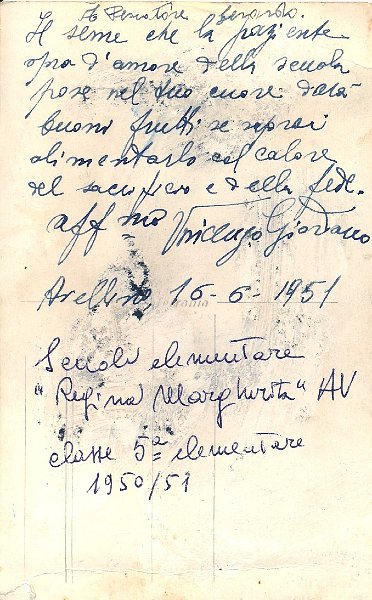 A Salvatore Gerardo.
Il seme che la paziente
opra d'amore della scuola
pose nel tuo cuore darà
buoni frutti se saprai
alimentarlo col calore
del sacrificio e della fede.
aff mo Vincenzo Giordano
Avellino, 16-6-1951
Scuola elementare
"Regina Margherita" AV
classe 5ª elementare
1950/51